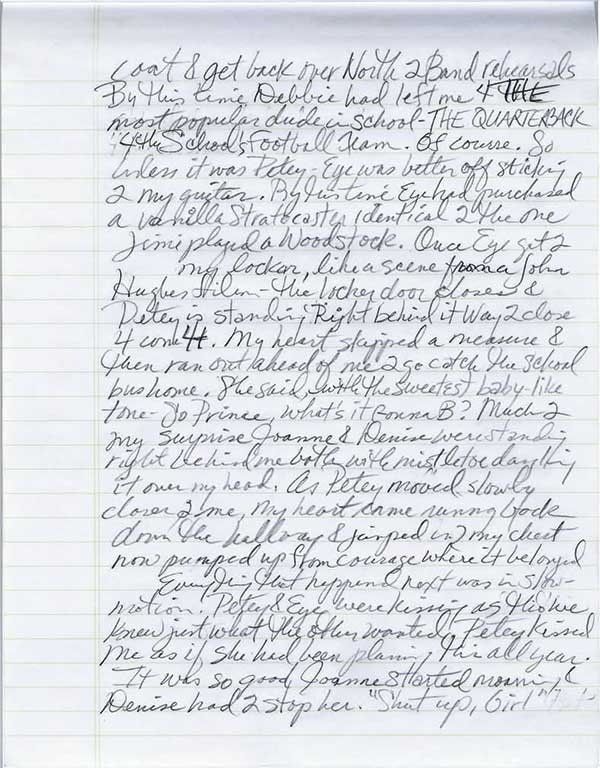 coat & get back over North 2 Band rehearsals
By this time Debbie had left me 4 THE
most popular dude in school - THE QUARTERBACK
4 the School's Football Team. Of course. So
Unless it was Petey - Eye was better off sticking
2 my guitar. By this time Eye had purchased
a vanilla Stratocaster identical 2 the one
Jimi played @ Woodstock. Once Eye got 2
my locker, like a scene from a John
Hughes film - the locker door closes &
Petey is standing Right behind it Way 2 close
4 com4t. My heart skipped a measure &
then ran out ahead of me 2 go catch the school
bus home. She said, with the sweetest baby-like
tone - Yo Prince, what's it Gonna B? Much 2
my surprise Joanne & Denise were standing
right behind me both with mistletoe dangling
it over my head. As Petey moved slowly
closer 2 me, my heart came running back
down the hallway & jumped in2 my chest
now pumped up from courage where it belonged
Everything that happened next was in slow-
motion. Petey & Eye were kissing as tho' we
knew just what the other wanted. Petey kissed
me as if she had been planning this all year.
It was so good Joanne started moaning &
Denise had 2 stop her. "Shut up, Girl"